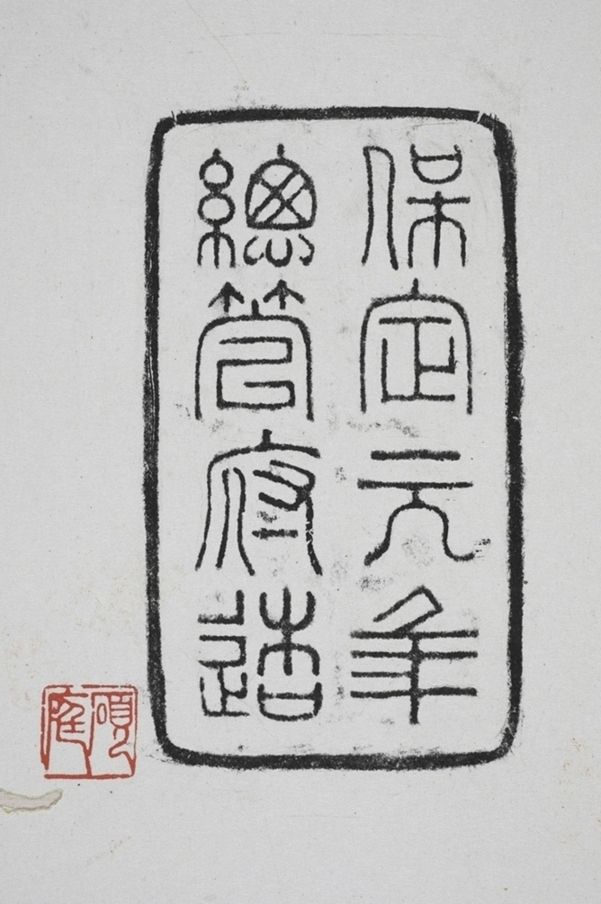 保定元年
總管府造
碩庭